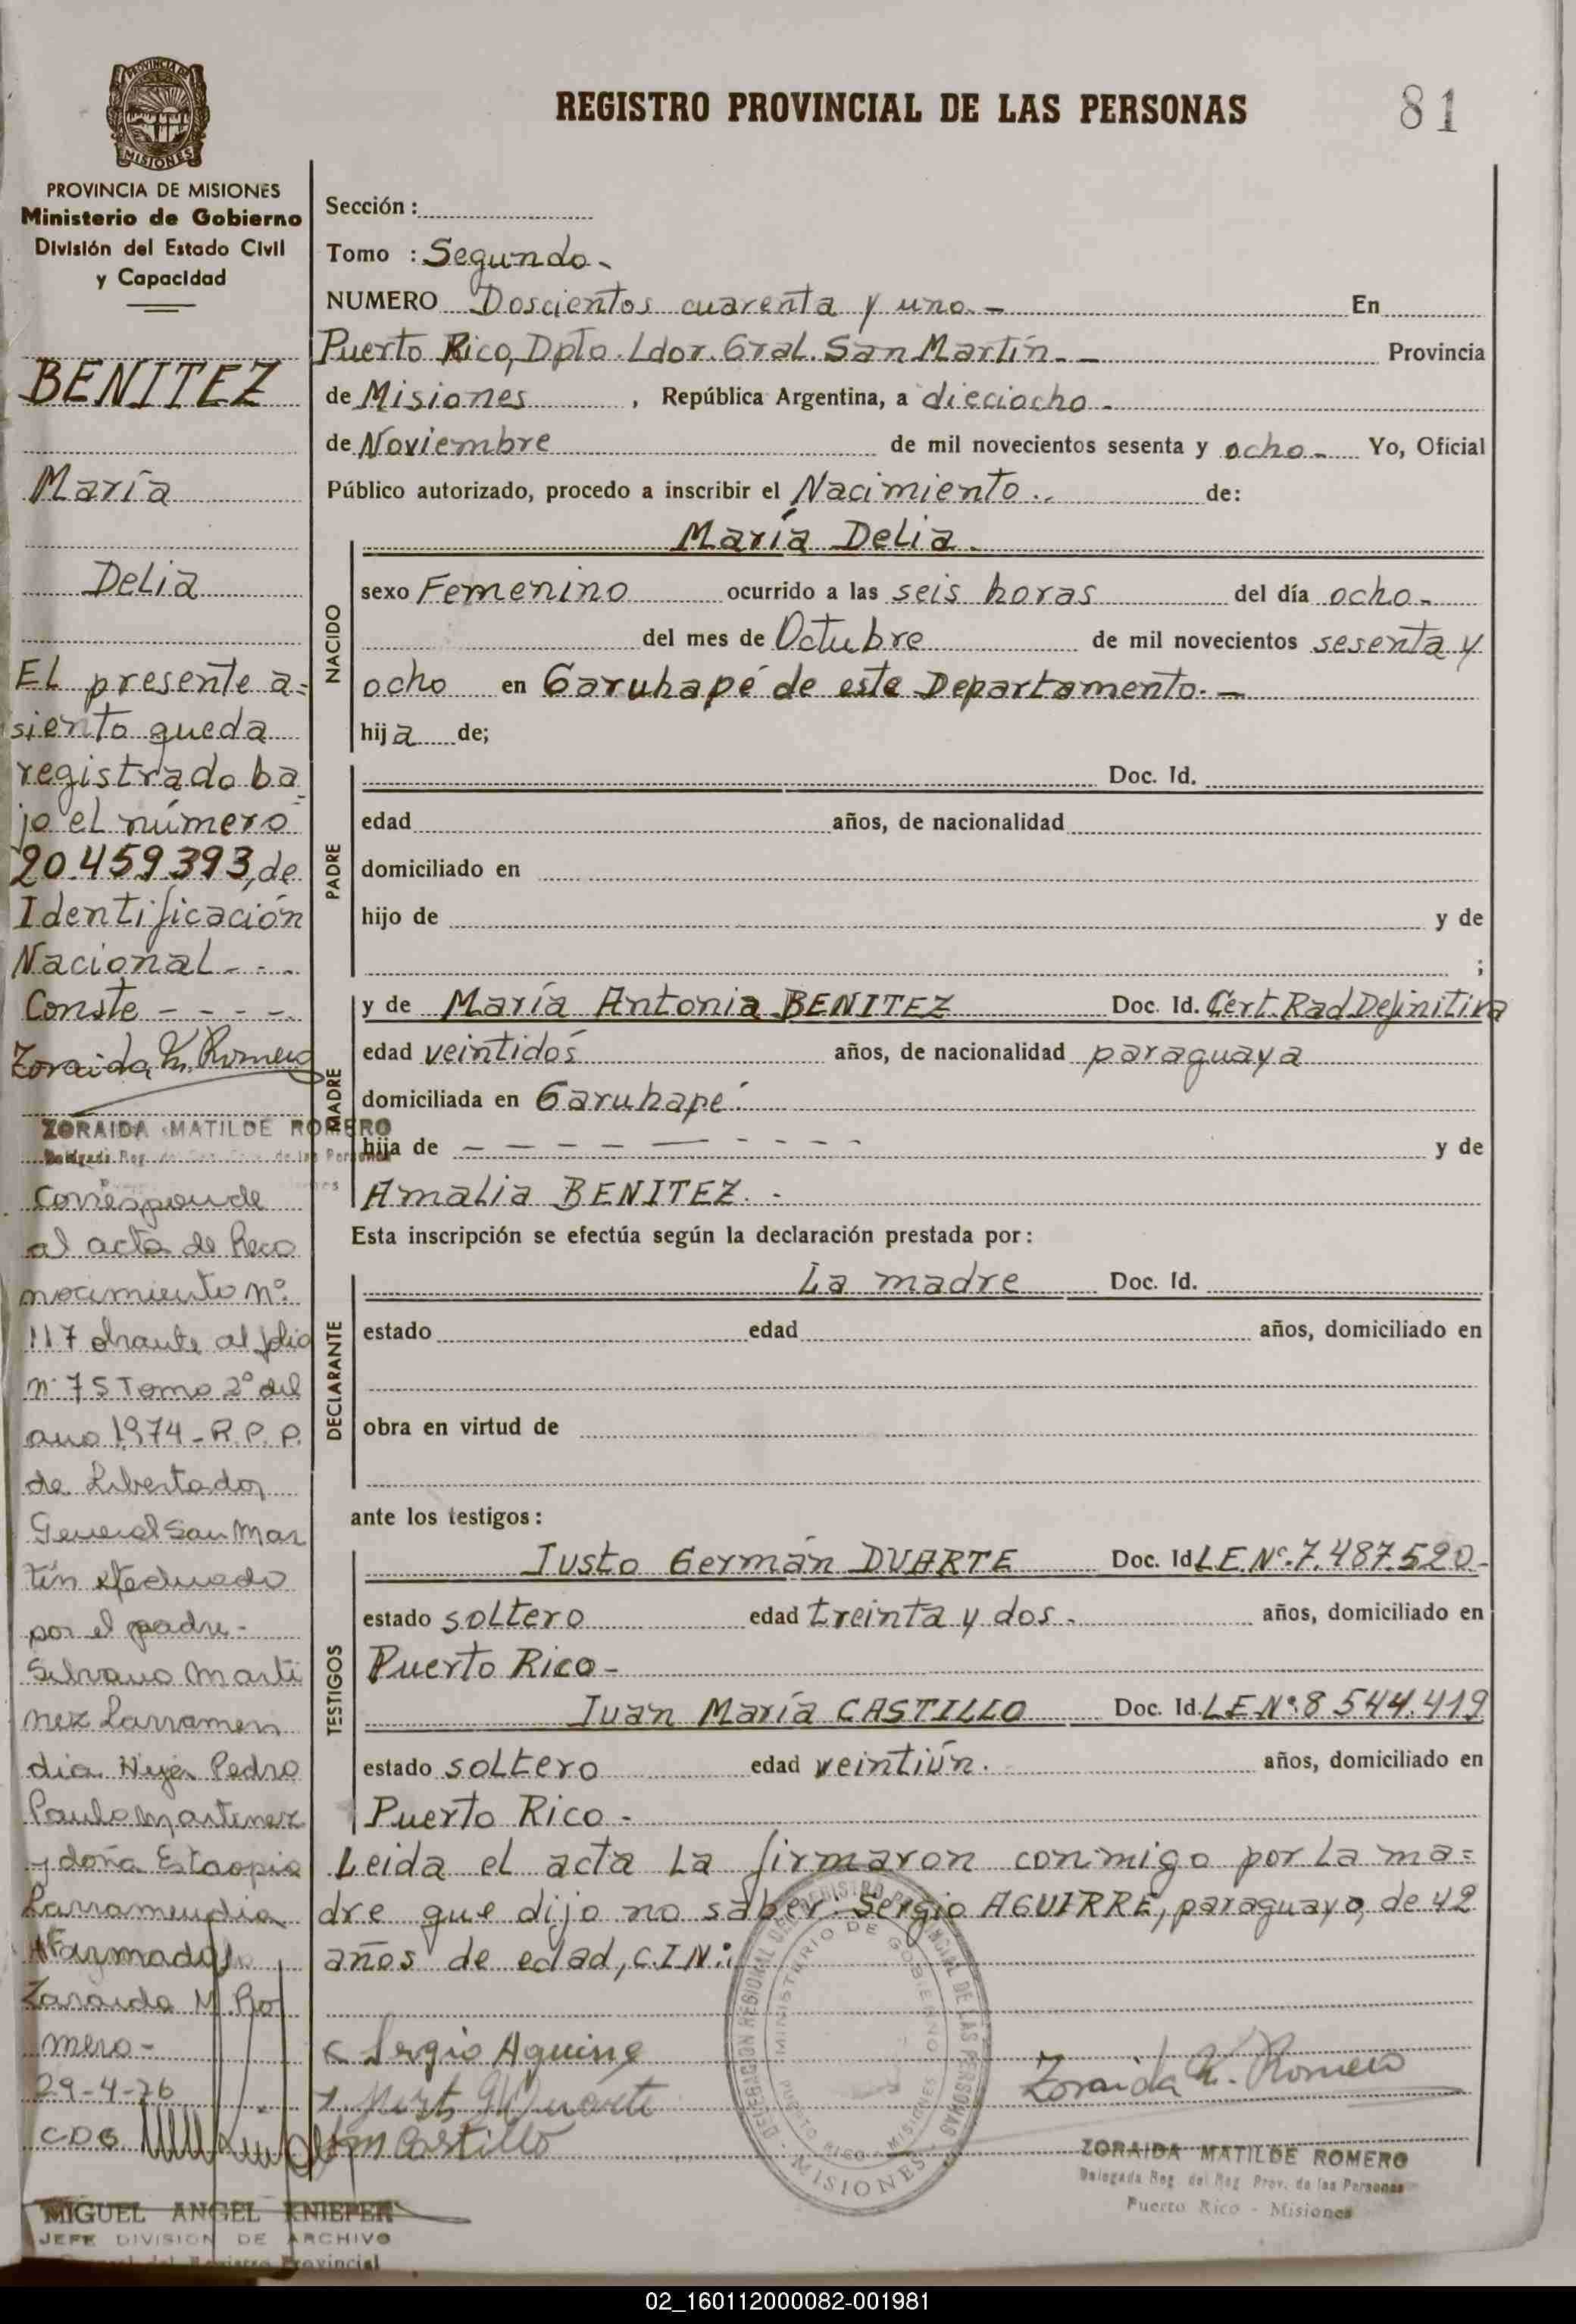 REGISTRO PROVINCIAL DE LAS PERSONAS
81
PROVINCIA DE MISIONES
MISIONES
PROVINCIA DE MISIONES
Ministerio de Gobierno
División del Estado Civil
y Capacidad
BENITEZ
María
Delia
El presente a=
siento queda
registrado ba
jo el número
20.459.393, de
Identificación
Nacional - - -
Conste - - - -
Zoraida M. Romero
ZORAIDA MATILDE ROMERO
Corresponde
al acta de Reco
nocimiento Nº
117 obrante al folio
nº 75 Tomo 2º del
año 1974 - R. P. P.
de Libertador
General San Mar
tín efectuado
por el padre -
Silvano Marti
nez Larramen
dia. Hijo Pedro
Paulo Martinez
y doña
Larramendia
Firmado
Zoraida M. Ro
mero -
29-4-76
CDG
MIGUEL ANGEL KNIEPER
JEFE DIVISION DE ARCHIVO
Registro Provincial
Sección :
Tomo : Segundo -
NUMERO Doscientos cuarenta y uno. - En
Puerto Rico, Dpto. Ldor. Gral. San Martín. - Provincia
de Misiones , República Argentina, a dieciocho -
de Noviembre de mil novecientos sesenta y ocho - Yo, Oficial
Público autorizado, procedo a inscribir el Nacimiento .. de:
María Delia.
NACIDO
sexo Femenino ocurrido a las seis horas del día ocho -
del mes de Octubre de mil novecientos sesenta y
ocho en Garuhapé de este Departamento. -
hija de;
PADRE
Doc. Id.
edad años, de nacionalidad
domiciliado en
hijo de y de
;
MADRE
y de María Antonia BENITEZ Doc. Id. Cert. Rad Definitiva
edad veintidós años, de nacionalidad paraguaya
domiciliada en Garuhapé.
hija de - - - - - - - - - y de
Amalia BENITEZ. -
Esta inscripción se efectúa según la declaración prestada por:
DECLARANTE
La madre Doc. Id.
estado edad años, domiciliado en
obra en virtud de
ante los testigos:
TESTIGOS
Justo Germán DUARTE Doc. Id L.E. Nº. 7.487.520 -
estado soltero edad treinta y dos - años, domiciliado en
Puerto Rico -
Juan María CASTILLO Doc. Id. L.E. Nº: 8 544.419
estado soltero edad veintiún. años, domiciliado en
Puerto Rico -
Leida el acta la firmaron conmigo por la ma=
dre que dijo no saber. Sergio AGUIRRE, paraguayo, de 42
años de edad, C.I.N.:
Sergio Aguirre
Duarte
JM Castillo
DELEGACION REGIONAL DEL REGISTRO PROVINCIAL DE LAS PERSONAS
MINISTERIO DE GOBIERNO
PUERTO RICO - MISIONES
MISIONES
Zoraida M. Romero
ZORAIDA MATILDE ROMERO
Delegada Reg. del Reg. Prov. de las Personas
Puerto Rico - Misiones
02_160112000082-001981